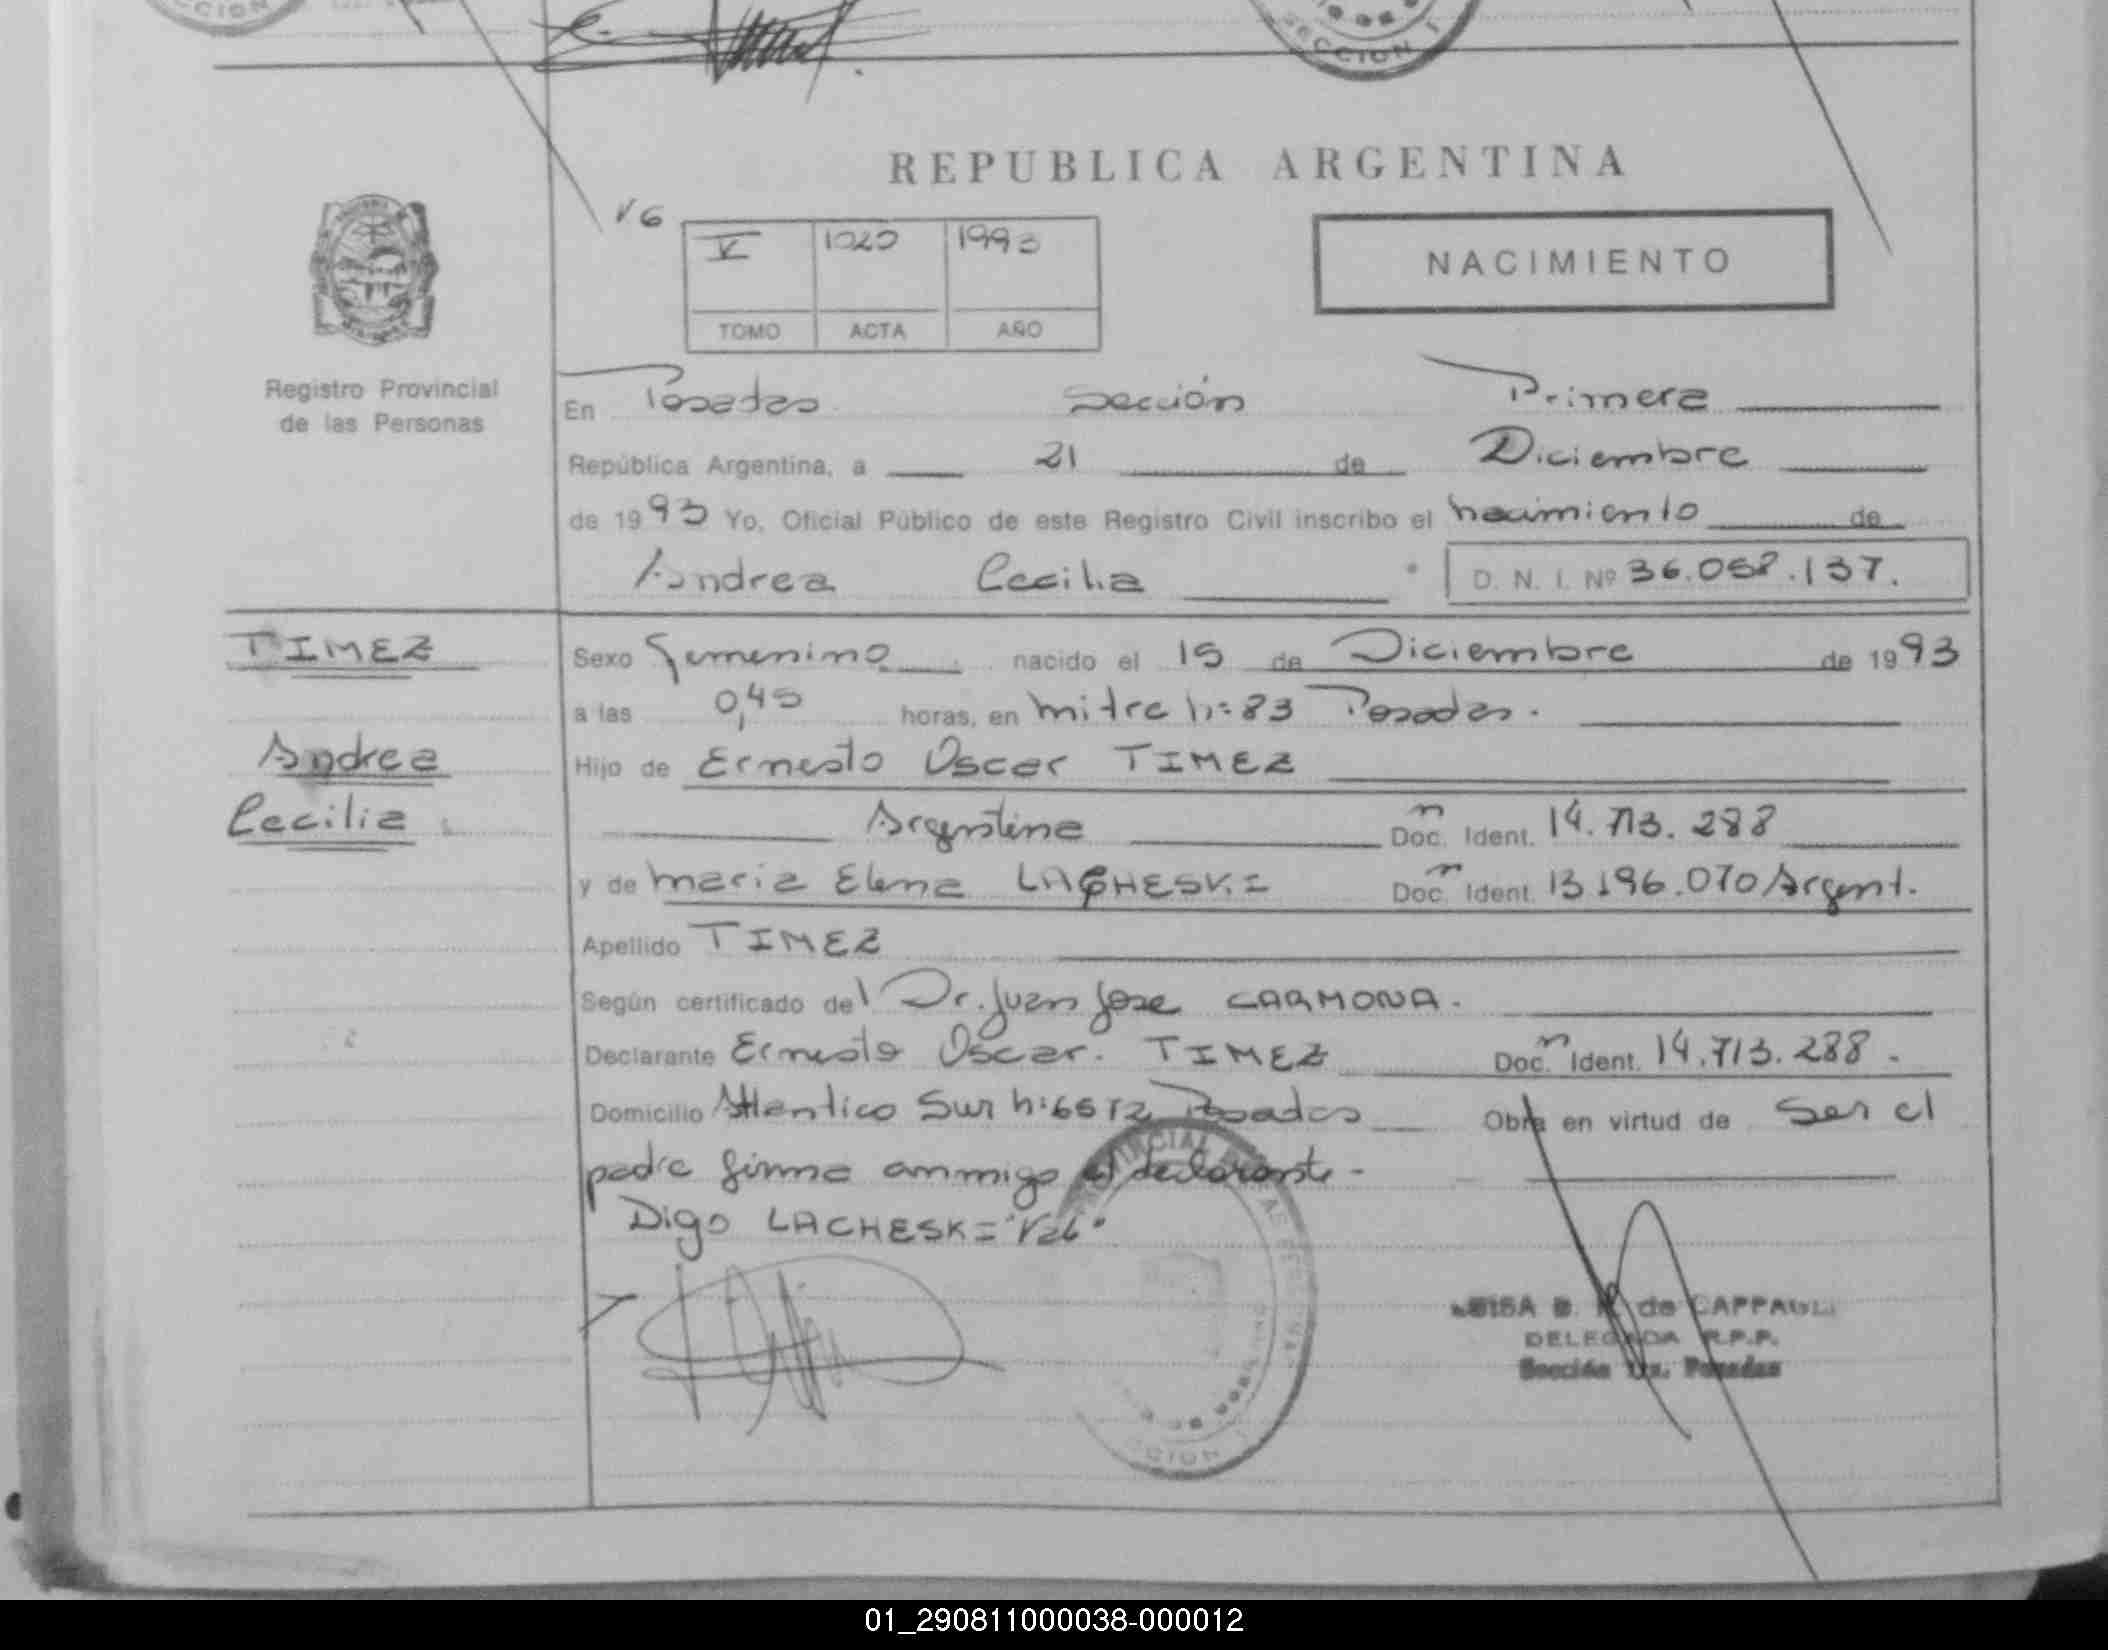 CCION
SECCION 1
REPUBLICA ARGENTINA
V6
V 1020 1993
TOMO ACTA AÑO
NACIMIENTO
Registro Provincial
de las Personas
En Posadas Sección Primera
República Argentina, a 21 de Diciembre
de 1993 Yo, Oficial Público de este Registro Civil inscribo el nacimiento de
Andrea Cecilia D. N. I. Nº 36.058.137.
TIMEZ
Sexo Femenino nacido el 15 de Diciembre de 1993
a las 0,45 horas, en mitre n:83 Posadas.
Andrea
Hijo de Ernesto Oscar TIMEZ
Cecilia
Argentina Doc. Ident. 14.713.288
y de maria Elena LACHESKI Doc. Ident. 13.196.070 Argent.
Apellido TIMEZ
Según certificado del Dr. Juan Jose CARMONA.
Declarante Ernesto Oscar. TIMEZ Doc. Ident. 14.713.288.
Domicilio Atlantico Sur n:6572 Posadas Obra en virtud de Ser el
padre firma conmigo el declarante-
Digo LACHESKI "Vale"
de CAPPAULI
DELEGADA R.P.P.
Sección 1a. Posadas
01_290811000038-000012